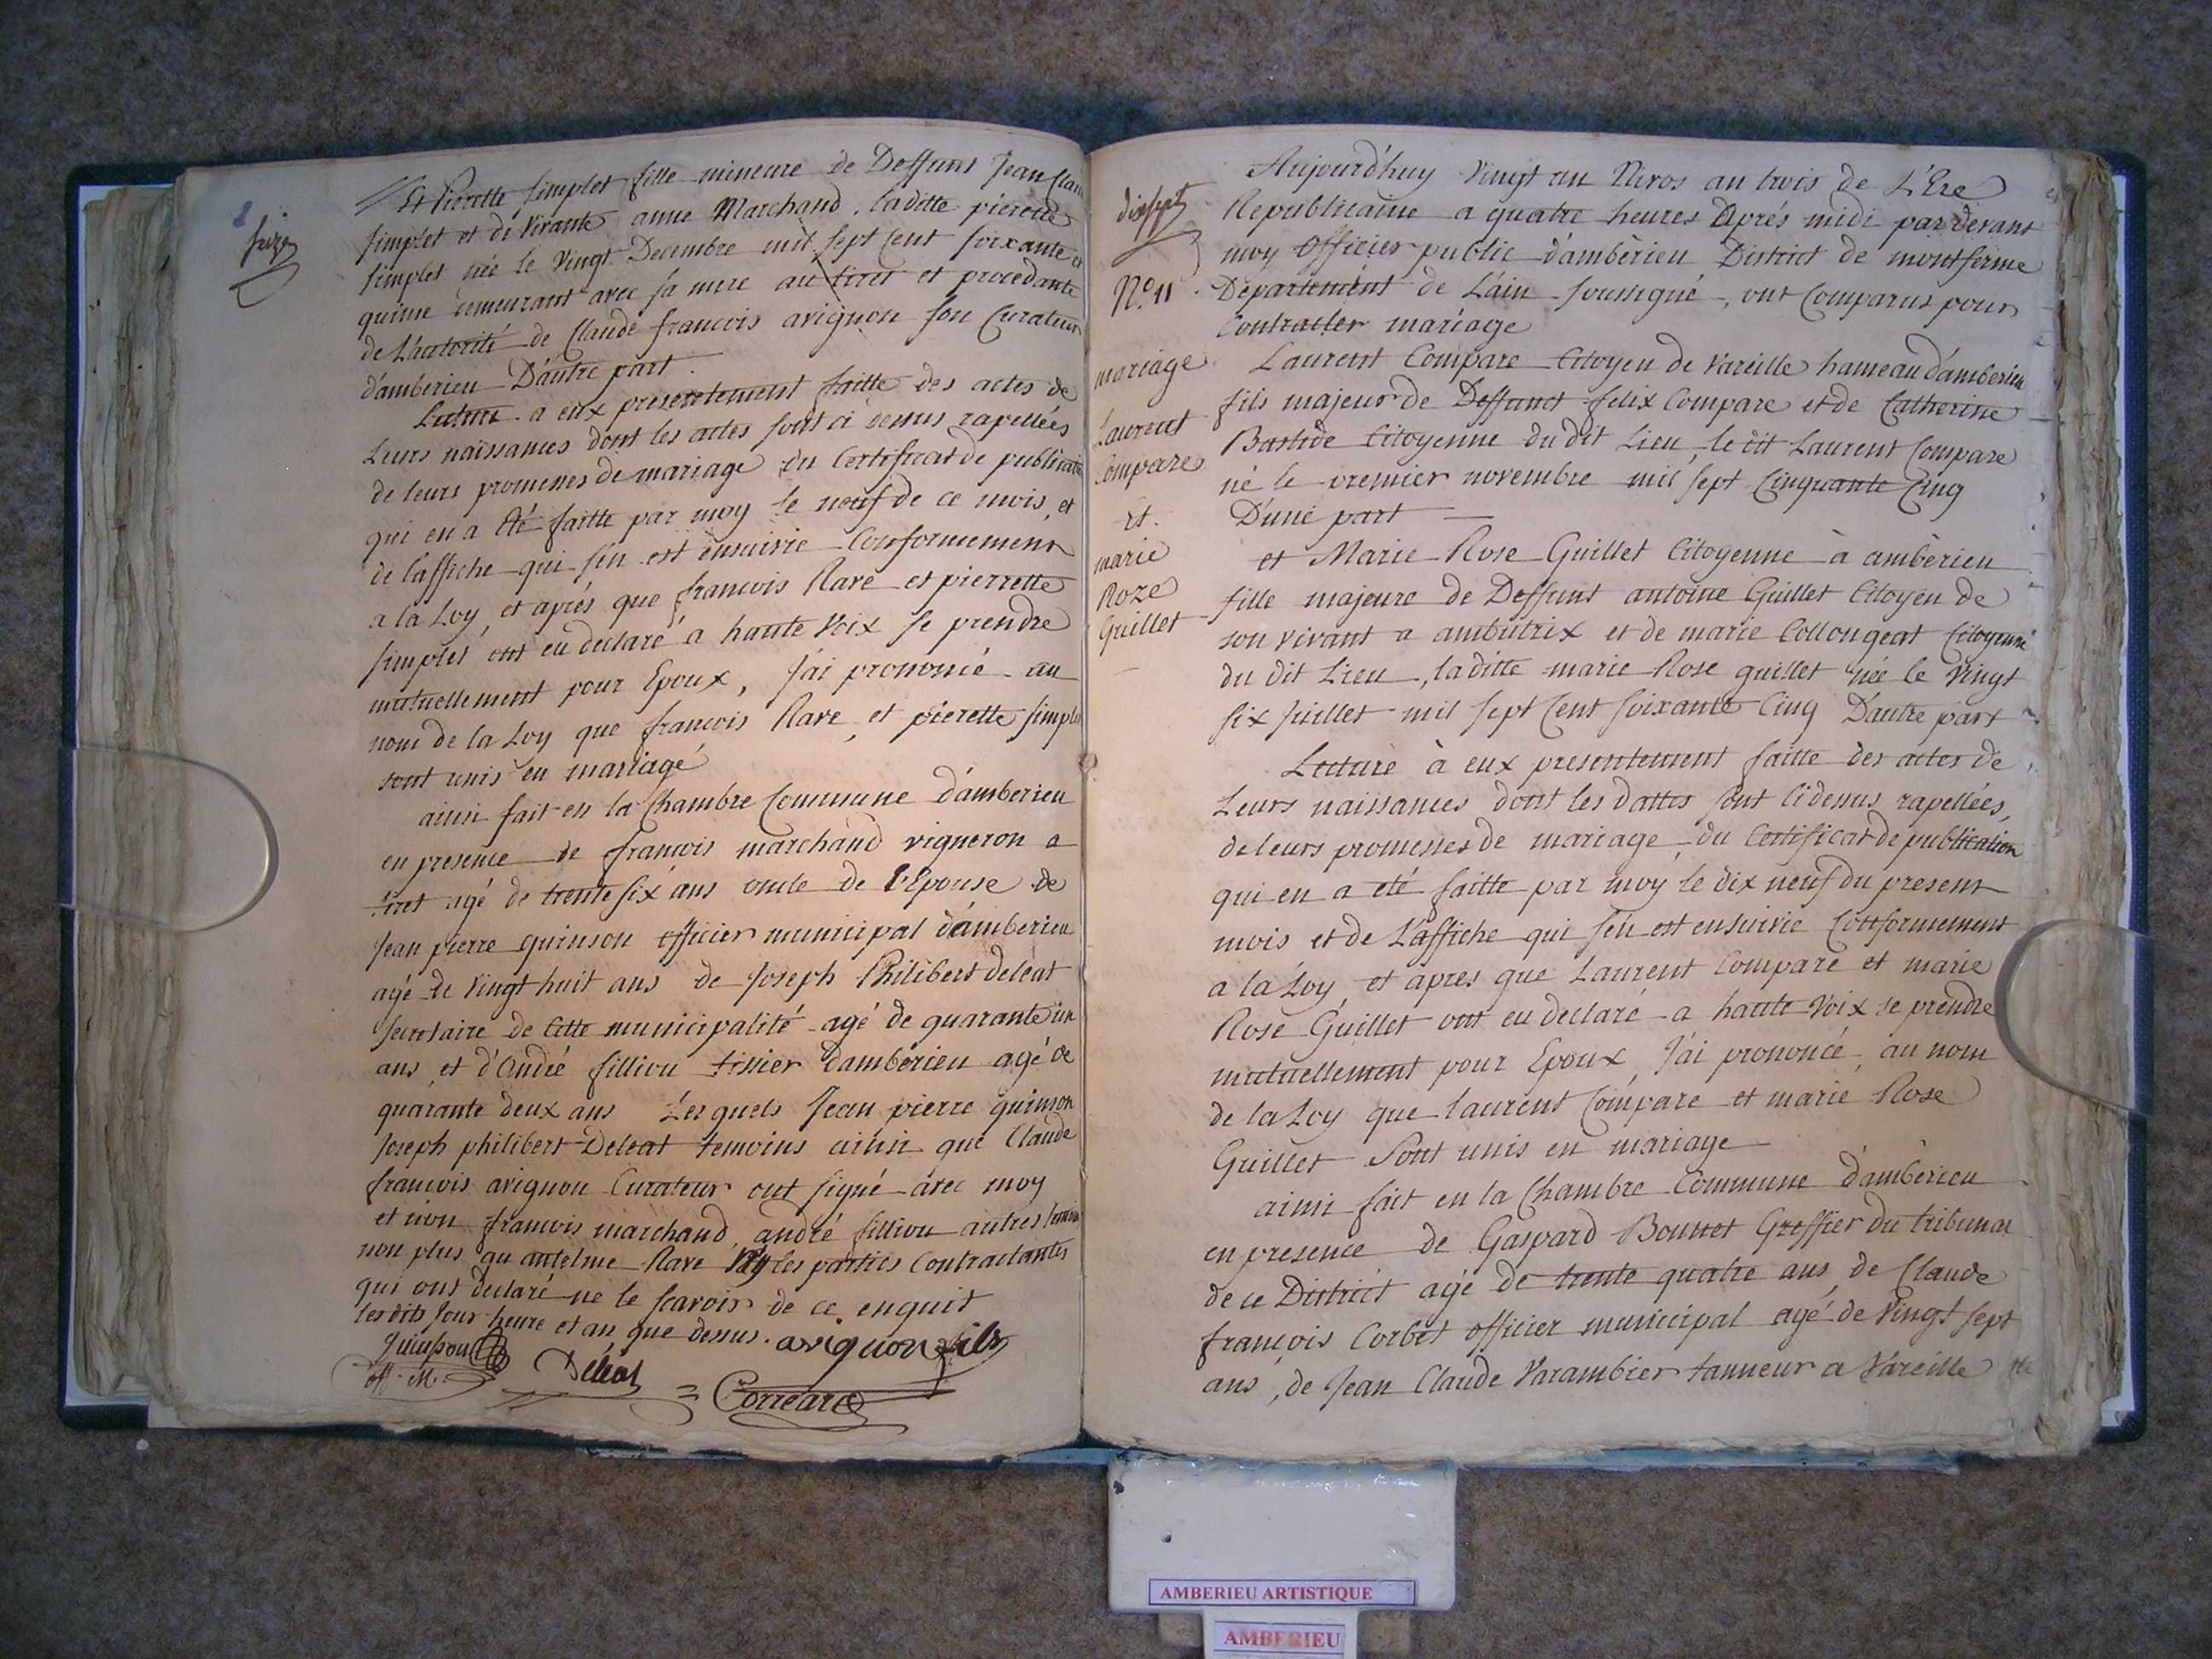 seize
Et Pierette simplet fille mineure de Deffunt Jean Clau
simplet et de vivante anne Marchand, laditte pierette
simplet née le vingt Decembre mil sept Cent soixante et
quinze demeurant avec sa mere au tiret et procedante
de L'autorité de Claude francois avignon son Curateur
d'amberieu D'autre part.
Lecture a eux presentement faitte des actes de
Leurs naissances dont les actes sont ci dessus rapellées
de leurs promesses de mariage du Certificat de publication
qui en a été faitte par moy le neuf de ce mois, et
de l'affiche qui s'en est ensuivie Conformement
a la Loy, et aprés que francois Rave et pierrette
simplet ont eu declaré a haute voix se prendre
mutuellement pour Epoux, J'ai prononcé au
nom de la Loy que francois Rave, et pierette simplet
sont unis en mariage
ainsi fait en la Chambre Commune d'amberieu
en presence de francois marchand vigneron a
tiret agé de trente six ans oncle de l'Epouse de
Jean pierre quinson officier municipal d'amberieu
agé de vingt huit ans de Joseph Philibert deleat
secretaire de Cette municipalité agé de quarante un
ans, et d'André filliou tissier d'amberieu agé de
quarante deux ans Les quels Jean pierre quinson
Joseph philibert Deleat temoins ainsi que Claude
francois avignon Curateur ont signé avec moy
et non francois marchand, andré filliou autres temoins
non plus qu'antelme Rave les parties Contractantes
qui ont declaré ne le scavoir de ce enquit
les dits Jour heure et an que dessus. avignon fils
Quinson
off. M. Déléat
Correard
dixsept
N.º 11
mariage
Laurent
Compare
Et.
marie
Roze
Guillet
Aujourd'huy vingt un Nivos an trois de L'Ere
Republicaine a quatre heures Aprés midi par devant
moy Officier public d'ambèrieu District de montferme
Departement de L'ain soussigné, ont Comparus pour
Contracter mariage
Laurent Compare Citoyen de vareille hameau d'amberieu
fils majeur de Deffunct felix Compare et de Catherine
Bastide Citoyenne du dit Lieu, le dit Laurent Compare
né le premier novembre mil sept Cinquante Cinq
D'une part
et Marie Rose Guillet Citoyenne à ambèrieu
fille majeure de Deffunt antoine Guillet Citoyen de
son vivant a ambutrix et de marie Collongeat Citoyenne
du dit Lieu, laditte marie Rose guillet née le vingt
six Juillet mil sept Cent soixante Cinq D'autre part
Lecture à eux presentement faitte des actes de
Leurs naissances dont les dattes sont Cidessus rapellées,
de leurs promesses de mariage, du Certificat de publication
qui en a eté faitte par moy le dix neuf du present
mois et de L'affiche qui s'en est ensuivie Conformement
a la Loy, et apres que Laurent Compare et marie
Rose Guillet ont eu declaré a haute voix se prendre
mutuellement pour Epoux, J'ai prononcé, au nom
de la Loy que laurent Compare et marie Rose
Guillet Sont unis en mariage
ainsi fait en la Chambre Commune d'ambèrieu
en presence de Gaspard Bonnet Greffier du tribunal
de ce District agé de trente quatre ans, de Claude
françois Corbet officier municipal agé de vingt sept
ans, de Jean Claude Varambier tanneur a Vareille
AMBERIEU ARTISTIQUE
AMBERIEU